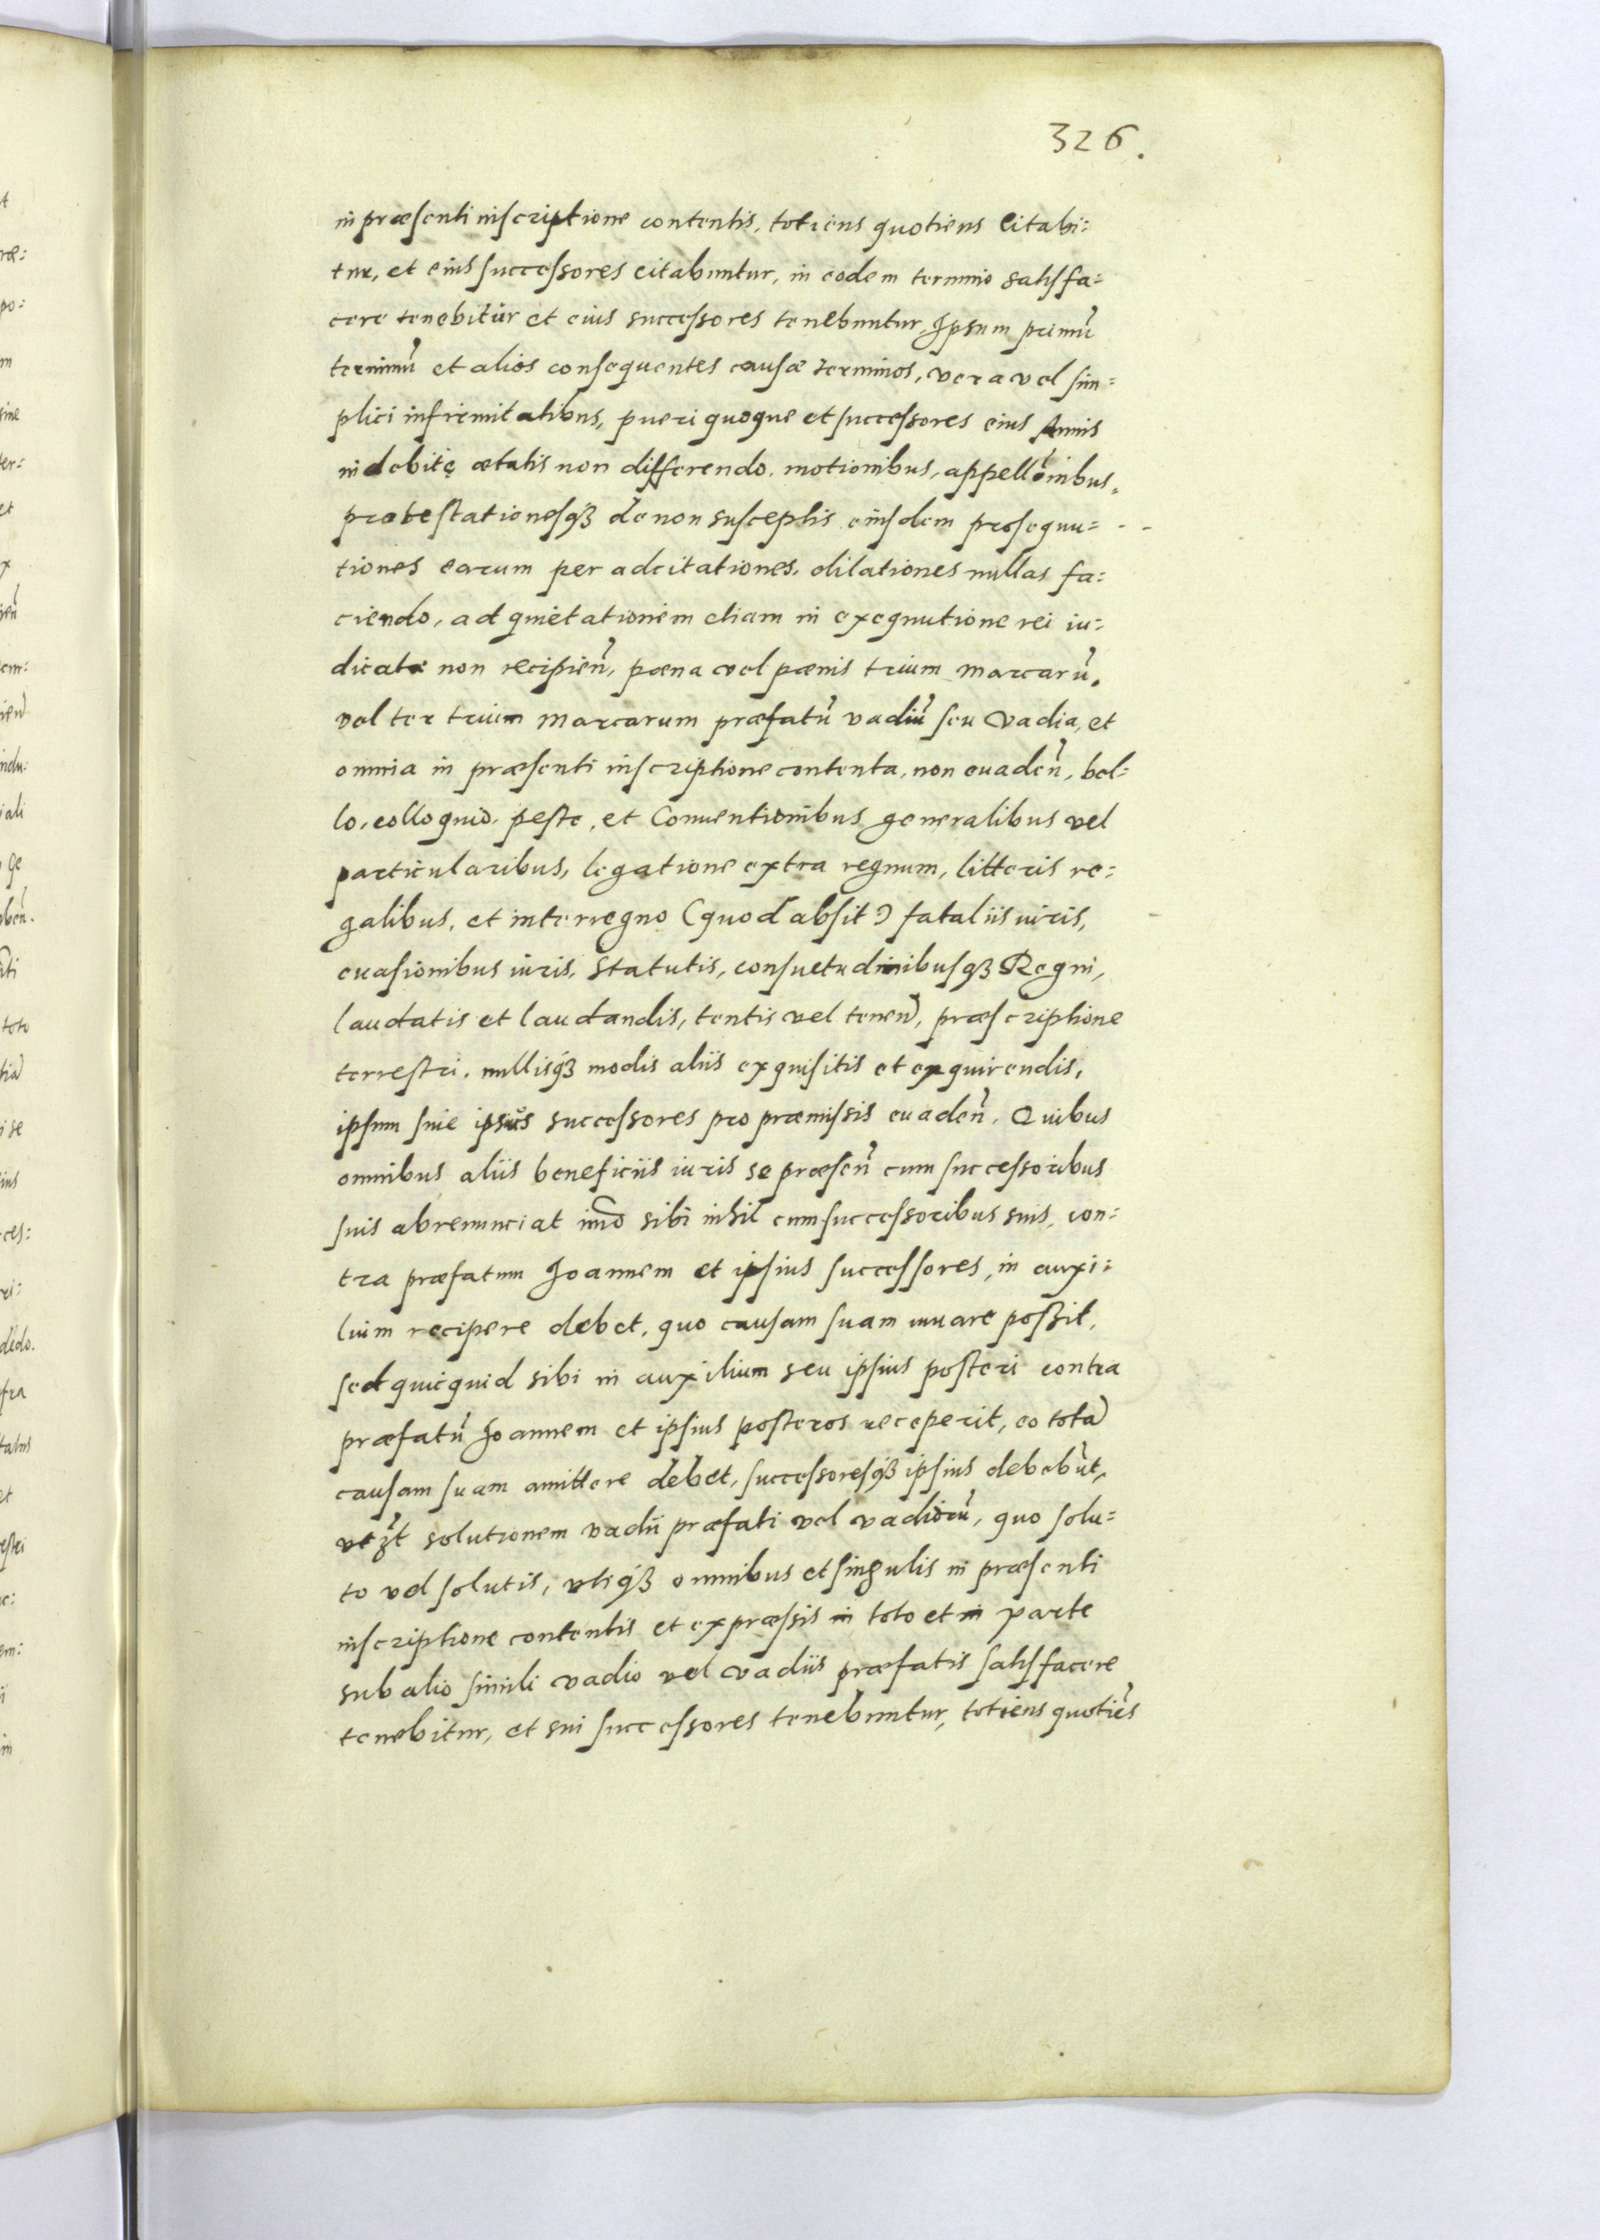 326.
in præsenti inscriptione contentis, totiens quotiens citabi:
tur, et eius successores citabuntur, in eodem termino satisfa:
cere tenebitur et eius successores tenebuntur, Ipsum primũ
terminũ et alios consequentes causæ terminos, vera vel sim:
plici infirmitatibus, pueri quoque et successores eius Annis
indebitę ætatis non differendo, motionibus, appellõnibus,
protestationesq3 de non susceptis eiusdem prosequu:
tiones earum per adcitationes, dilationes nullas fa:
ciendo, ad quietationem etiam in exequutione rei iu:
dicatæ non recipieñ, pæna vel pænis trium marcarũ,
vel ter trium marcarum præfatũ vadiũ seu vadia, et
omnia in præsenti inscriptione contenta, non euadeñ, bel:
lo, colloquio, peste, et Conuentionibus generalibus vel
particularibus, legatione extra regnum, litteris re:
galibus, et interregno (quod absit) fataliis iuris,
euasionibus iuris, statutis, consuetudinibusq3 Regni,
laudatis et laudandis, tentis vel teneñ, præscriptione
terrestri, nullisq3 modis aliis exquisitis et exquirendis,
ipsum siue ipsius successores pro præmissis euadeñ. Quibus
omnibus aliis beneficiis iuris se præseñ cum successoribus
suis abrenunciat imo sibi nihil cum successoribus suis, con:
tra præfatum Joannem et ipsius successores, in auxi:
lium recipere debet, quo causam suam iuuare possit,
sed quicquid sibi in auxilium seu ipsius posteri contra
præfatũ Joannem et ipsius posteros receperit, eo totã
causam suam amittere debet, successoresq3 ipsius debebũt,
vezt solutionem vadii præfati vel vadiorũ, quo solu:
to vel solutis, vtiq3 omnibus et singulis in præsenti
inscriptione contentis et expræssis in toto et in parte
sub alio simili vadio vel vadiis præfatis satisfacere
tenebitur, et sui successores tenebuntur, totiens quotiẽs